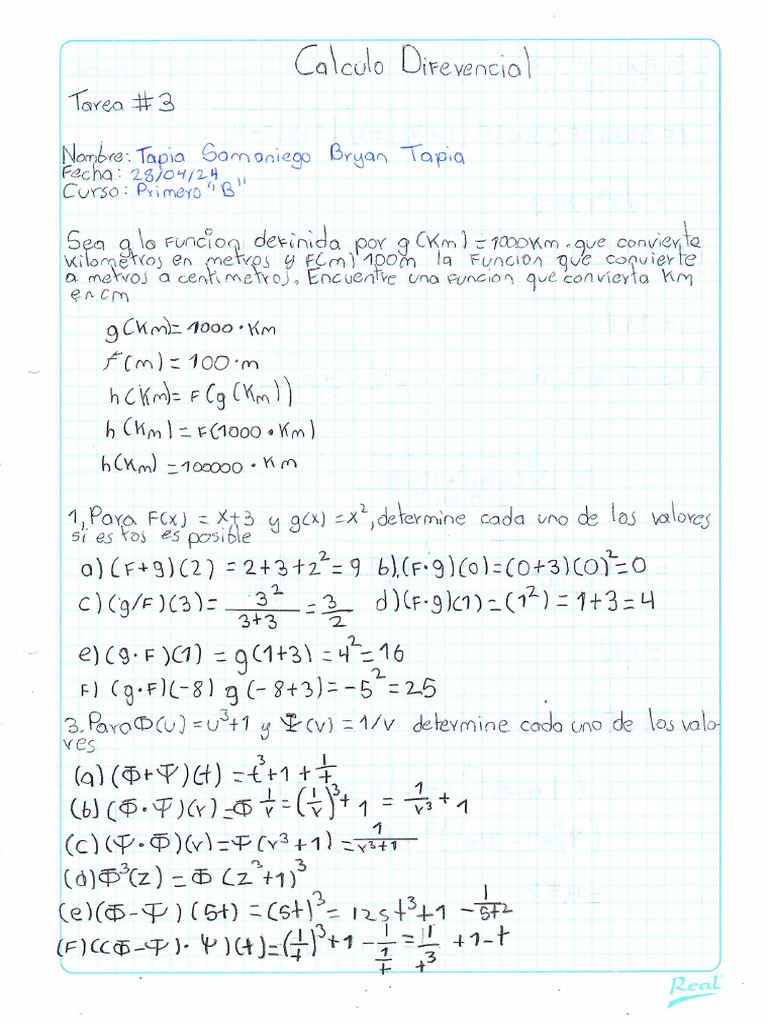 Calculo Diferencial
Tarea #3
Nombre: Tapia Samaniego Bryan Tapia
Fecha: 28/04/24
Curso: Primero "B"
Sea g la Funcion definida por g(Km) = 1000Km. que convierte
kilometros en metros y F(m) 100m la Funcion que convierte
a metros a centimetros. Encuentre una funcion que convierta Km
en cm
g(Km) = 1000 · Km
f(m) = 100 · m
h(Km) = F(g(Km))
h(Km) = F(1000 · Km)
h(Km) = 100000 · Km
1, Para F(x) = x+3 y g(x) = x², determine cada uno de los valores
si estos es posible
a) (F+g)(2) = 2+3+2² = 9 b), (F·g)(0) = (0+3)(0)² = 0
c) (g/F)(3) = 3²/3+3 = 3/2 d) (F·g)(1) = (1²) = 1+3 = 4
e) (g·F)(1) = g(1+3) = 4² = 16
F) (g·F)(-8) g(-8+3) = -5² = 25
3. Para Φ(u) = u³+1 y Ψ(v) = 1/v determine cada uno de los valo-
res
(a) (Φ+Ψ)(t) = t³+1+1/t
(b) (Φ·Ψ)(r) = Φ 1/r = (1/r)³+1 = 1/r³ + 1
(c) (Ψ·Φ)(r) = Ψ(r³+1) = 1/r³+1
(d) Φ³(z) = Φ (z³+1)³
(e) (Φ-Ψ)(5t) = (5t)³ = 125t³+1 - 1/5t2
(F) ((Φ-Ψ)·Ψ)(t) = (1/t)³+1 - 1/1/t = 1/t³ +1-t
Real